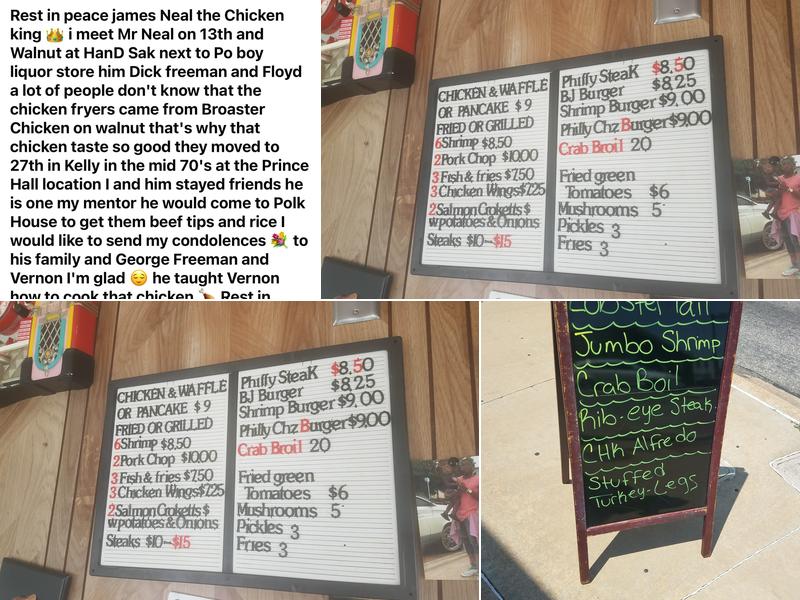 Rest in peace james Neal the Chicken
king 👑 i meet Mr Neal on 13th and
Walnut at HanD Sak next to Po boy
liquor store him Dick freeman and Floyd
a lot of people don't know that the
chicken fryers came from Broaster
Chicken on walnut that's why that
chicken taste so good they moved to
27th in Kelly in the mid 70's at the Prince
Hall location I and him stayed friends he
is one my mentor he would come to Polk
House to get them beef tips and rice I
would like to send my condolences 💐 to
his family and George Freeman and
Vernon I'm glad 😌 he taught Vernon
how to cook that chicken 🍗 Rest in
CHICKEN & WAFFLE
OR PANCAKE $9
FRIED OR GRILLED
6 Shrimp $8,50
2 Pork Chop $10,00
3 Fish & fries $7,50
3 Chicken Wings $7,25
2 Salmon Croketts $
w potatoes & Onions
Steaks $10-$15
Philly SteaK $8.50
BJ Burger $8,25
Shrimp Burger $9,00
Philly Chz Burger $9,00
Crab Broil 20
Fried green
Tomatoes $6
Mushrooms 5
Pickles 3
Fries 3
CHICKEN & WAFFLE
OR PANCAKE $9
FRIED OR GRILLED
6 Shrimp $8,50
2 Pork Chop $10,00
3 Fish & fries $7,50
3 Chicken Wings $7,25
2 Salmon Croketts $
w potatoes & Onions
Steaks $10-$15
Philly SteaK $8.50
BJ Burger $8,25
Shrimp Burger $9,00
Philly Chz Burger $9,00
Crab Broil 20
Fried green
Tomatoes $6
Mushrooms 5
Pickles 3
Fries 3
Lobster Tail
Jumbo Shrimp
Crab Boil
Rib-eye Steak
CHK Alfredo
Stuffed
Turkey-Legs